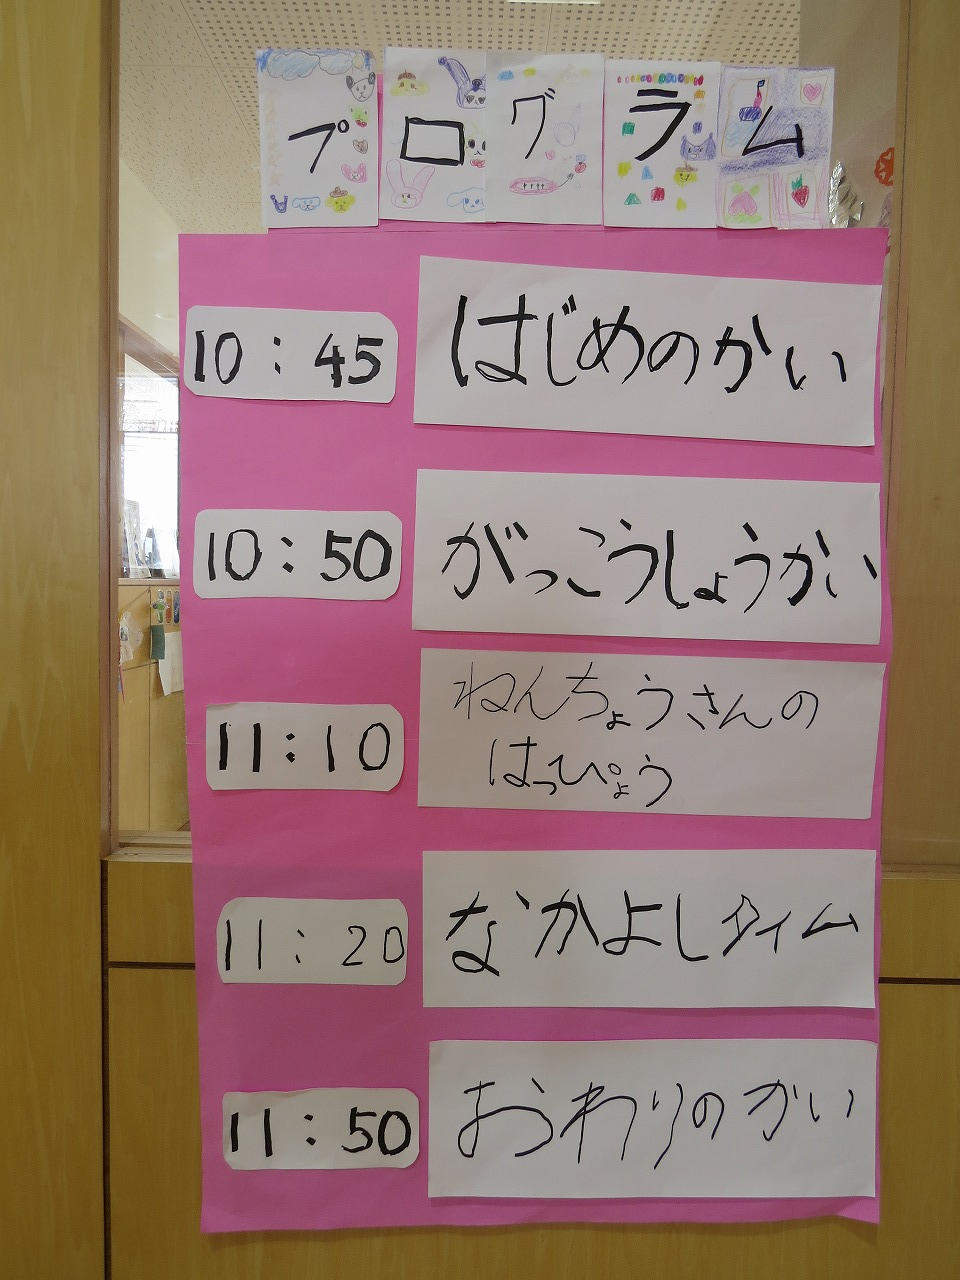 プログラム
10:45 はじめのかい
10:50 がっこうしょうかい
11:10 ねんちょうさんの
はっぴょう
11:20 なかよしタイム
11:50 おわりのかい